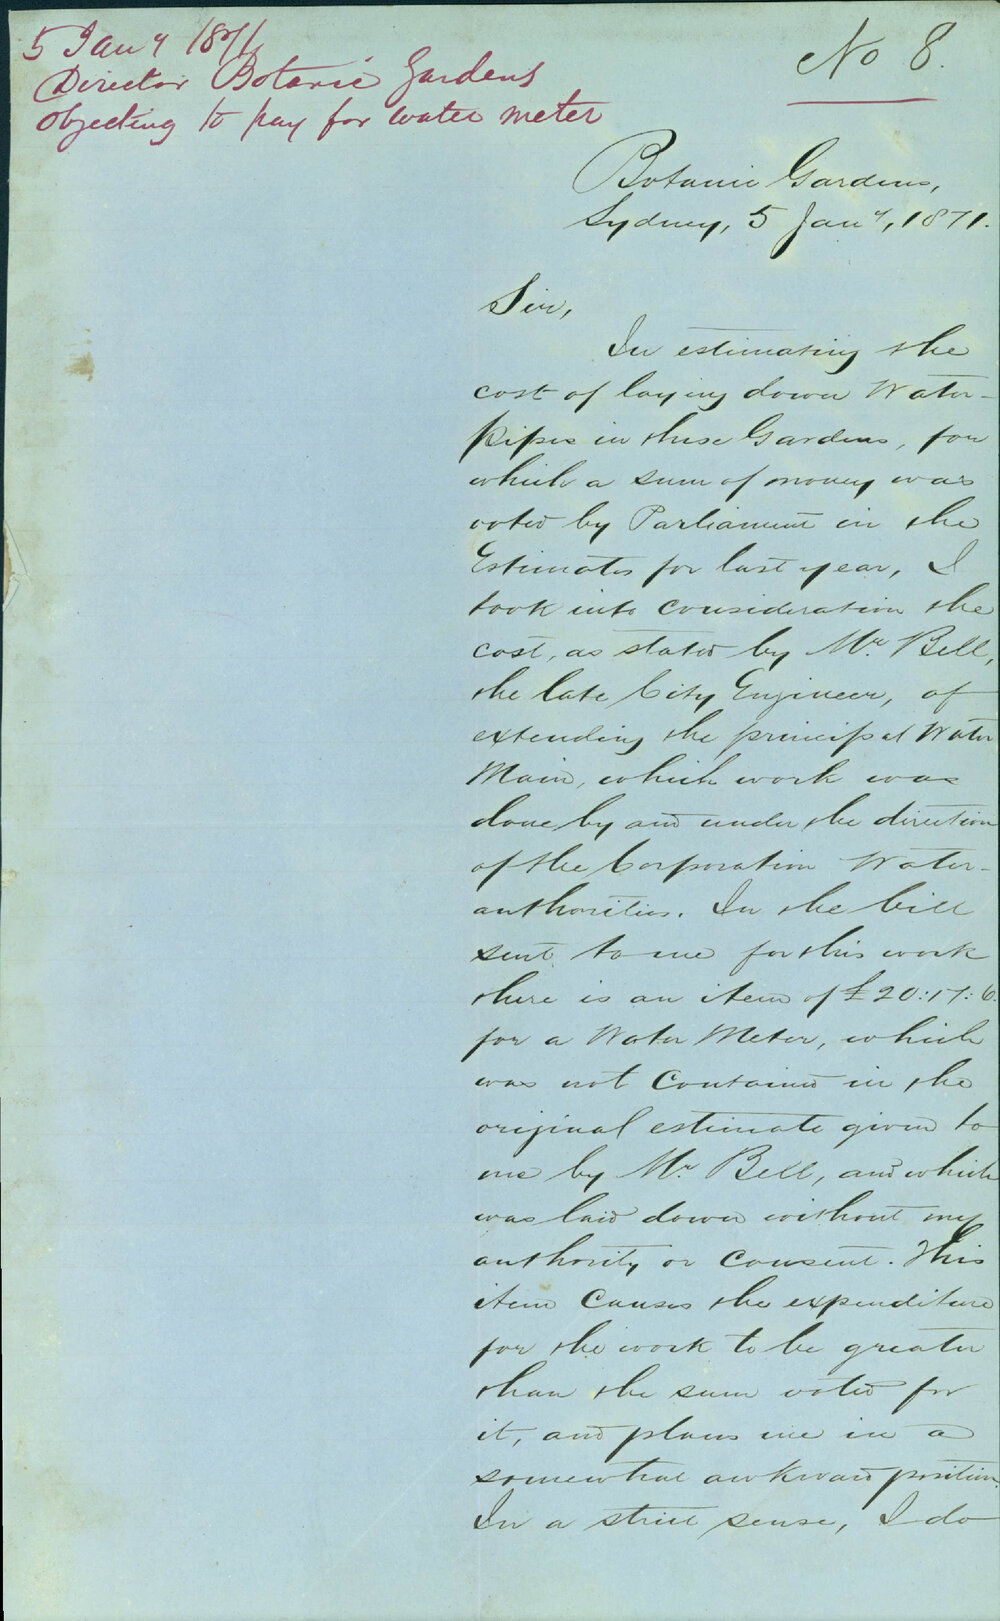 5 Jany 1871
Director Botanic Gardens
Objecting to pay for water meter
No 8.
Botanic Gardens,
Sydney, 5 Jany, 1871.
Sir,
In estimating the
cost of laying down Water-
Pipes in these Gardens, for
which a sum of money was
voted by Parliament in the
Estimates for last year, I
took into consideration the
cost, as stated by Mr. Bell,
the late City Engineer, of
extending the principal Water
Main, which work was
done by and under the direction
of the Corporation Water-
authorities. In the bill
sent to me for this work
there is an item of £20:17:6
for a Water Meter, which
was not contained in the
original estimate given to
me by Mr. Bell, and which
was laid down without my
authority or consent. This
item causes the expenditure
for the work to be greater
than the sum voted for
it, and places me in a
somewhat awkward position.
In a strict sense, I do